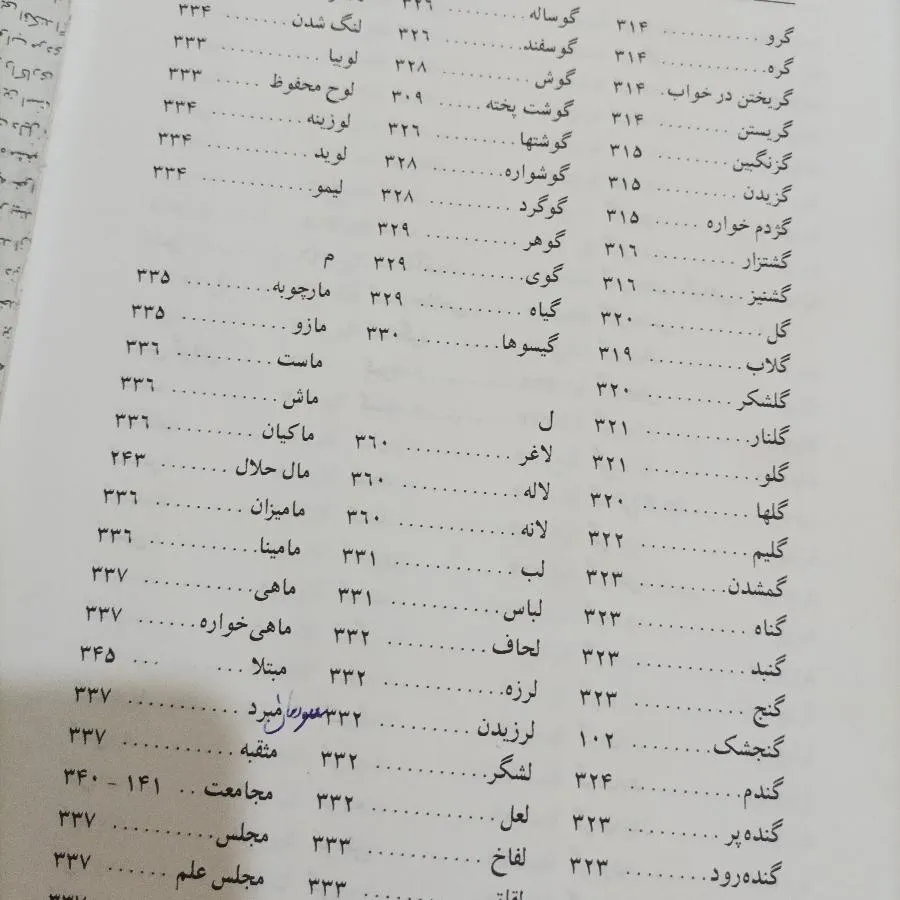 گرو ........... ۳۱۴
گره ............ ۳۱۴
گریختن در خواب . ۳۱۴
گریستن ........ ۳۱۴
گزنگبین ........ ۳۱۵
گزیدن ......... ۳۱۵
گژدم خواره ..... ۳۱۵
گشتزار ......... ۳۱٦
گشنیز .......... ۳۱٦
گل ............ ۳۲۰
گلاب .......... ۳۱۹
گلشکر ......... ۳۲۰
گلنار ........... ۳۲۱
گلو ............ ۳۲۱
گلها ........... ۳۲۰
گلیم ........... ۳۲۲
گمشدن ......... ۳۲۳
گناه ............ ۳۲۳
گنبد ........... ۳۲۳
گنج ........... ۳۲۳
گنجشک ........ ۱۰۲
گندم ........... ۳۲۴
گنده‌پر ......... ۳۲۳
گنده‌رود ........ ۳۲۳
گوساله ......... ۳۲٦
گوسفند ........ ۳۲٦
گوش .......... ۳۲۸
گوشت پخته ..... ۳۰۹
گوشتها ......... ۳۲٦
گوشواره ........ ۳۲۸
گوگرد ......... ۳۲۸
گوهر .......... ۳۲۹
گوی .......... ۳۲۹
گیاه ........... ۳۲۹
گیسوها ......... ۳۳۰
ل
لاغر .......... ۳٦۰
لاله ........... ۳٦۰
لانه ........... ۳٦۰
لب ........... ۳۳۱
لباس .......... ۳۳۱
لحاف ......... ۳۳۲
لرزه ........... ۳۳۲
لرزیدن ......... ۳۳۲
لشگر .......... ۳۳۲
لعل ........... ۳۳۲
لفاخ .......... ۳۳۳
۳۳۳
لنگ شدن ...... ۳۳۴
لوبیا .......... ۳۳۳
لوح محفوظ ..... ۳۳۳
لوزینه ......... ۳۳۴
لوید .......... ۳۳۴
لیمو .......... ۳۳۴
م
مارچوبه ........ ۳۳۵
مازو .......... ۳۳۵
ماست ......... ۳۳٦
ماش .......... ۳۳٦
ماکیان ......... ۳۳٦
مال حلال ...... ۲۴۳
مامیزان ........ ۳۳٦
مامینا .......... ۳۳٦
ماهی .......... ۳۳۷
ماهی‌خواره ...... ۳۳۷
مبتلا ... ... ۳۴۵
مبرد .......... ۳۳۷
مثقبه .......... ۳۳۷
مجامعت .. ۱۴۱ - ۳۴۰
مجلس ......... ۳۳۷
مجلس علم ...... ۳۳۷